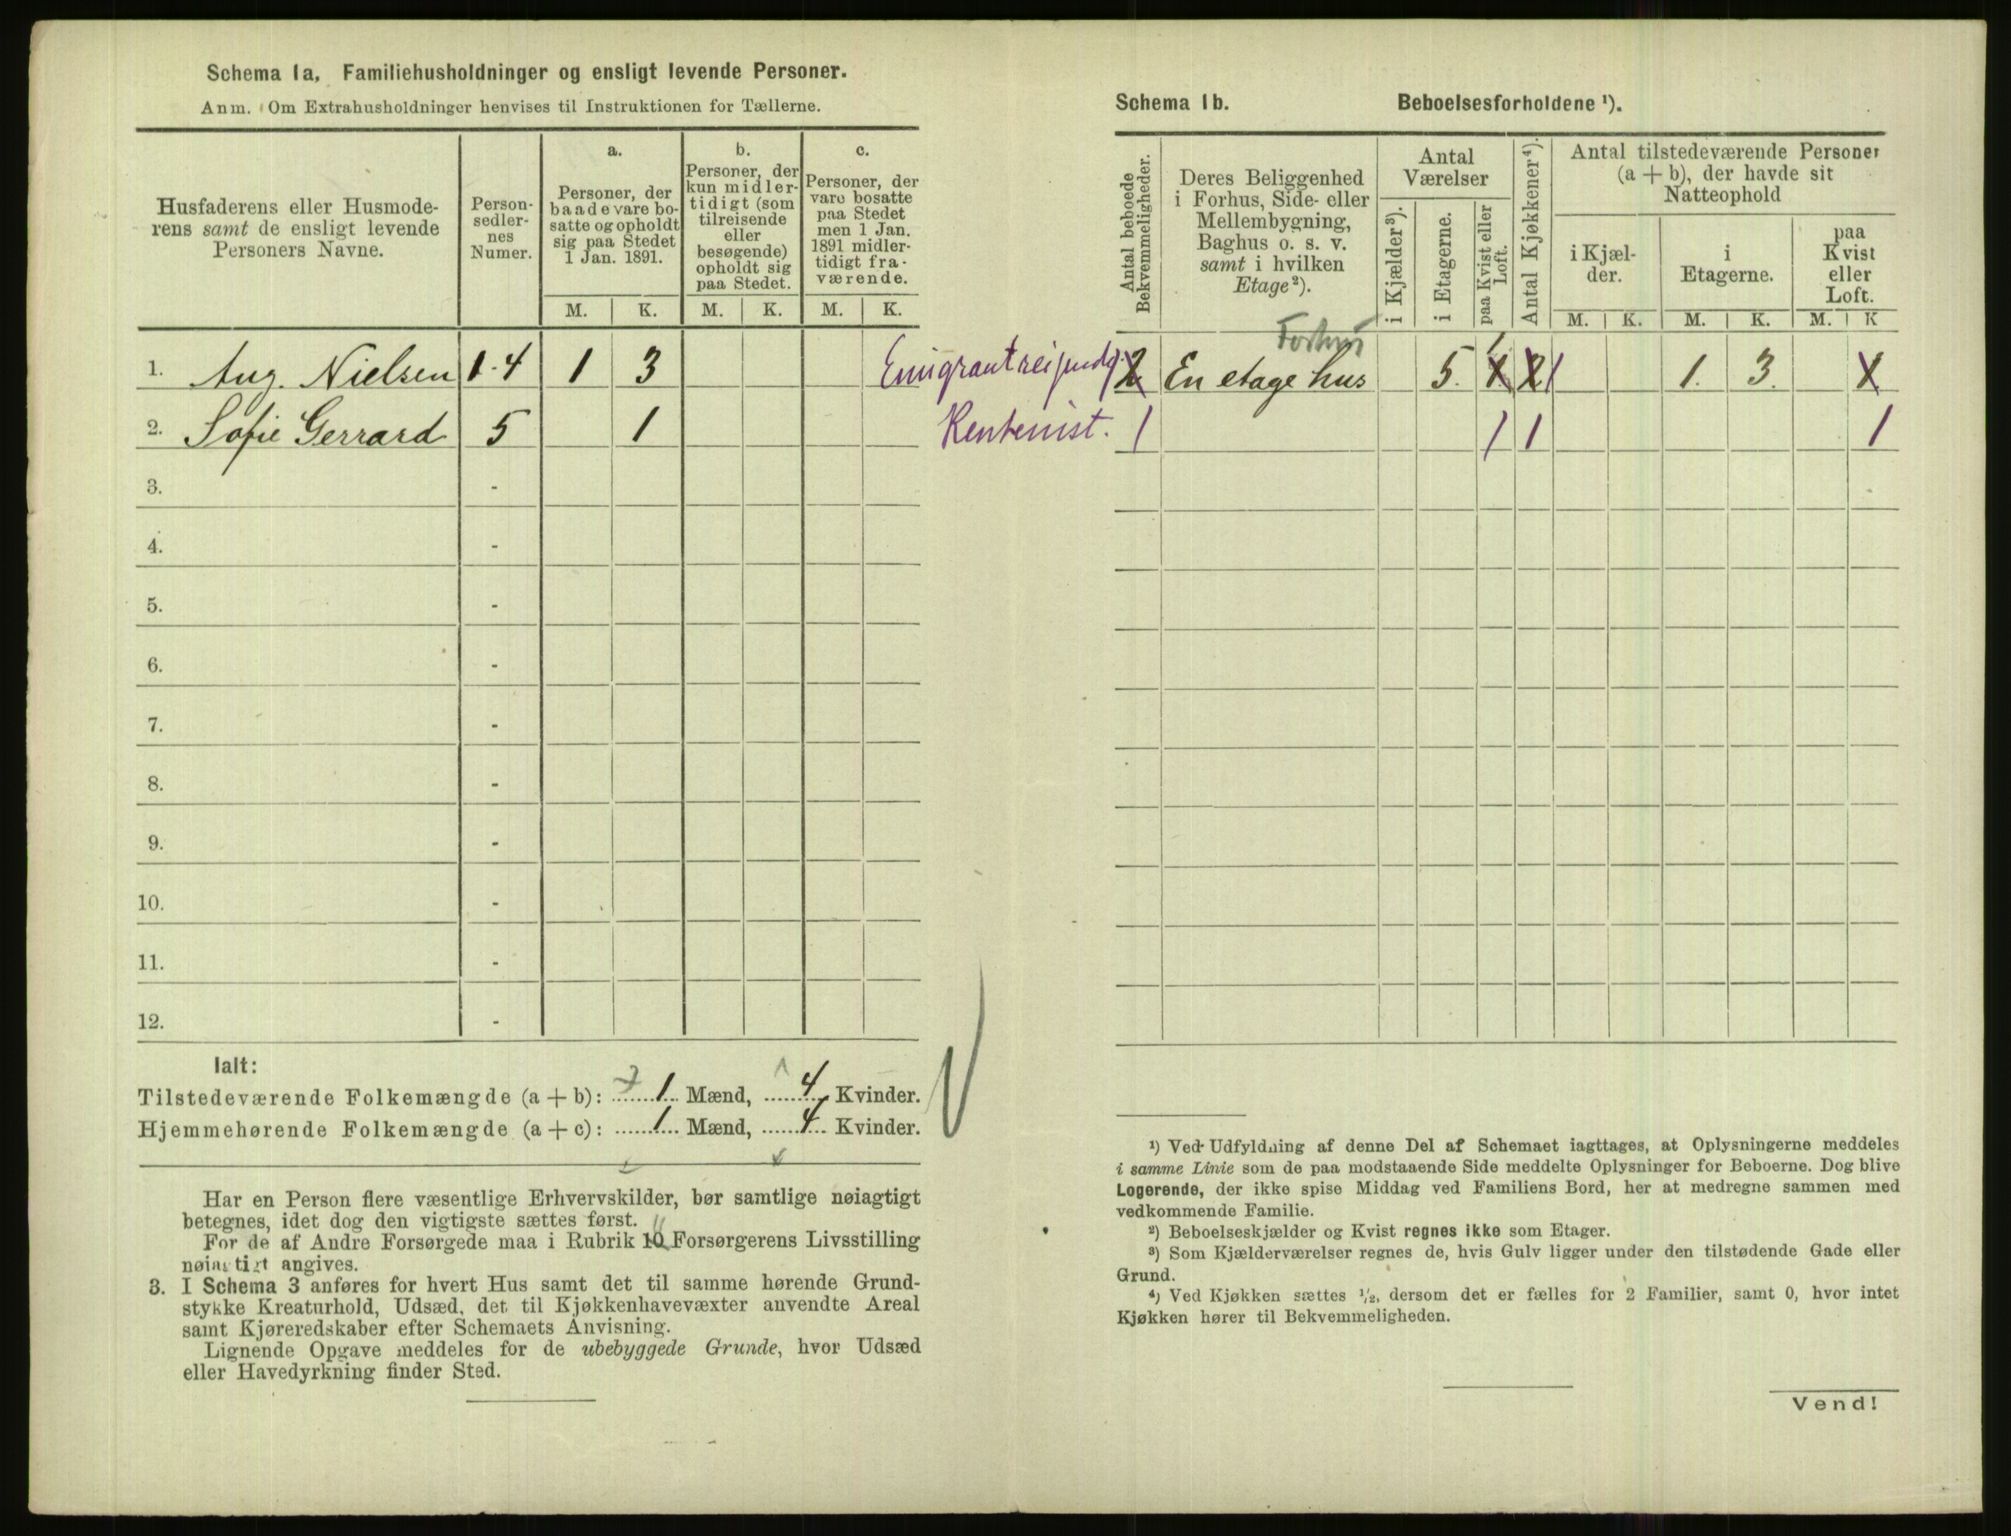 Schema 1a. Familiehusholdninger og ensligt levende Personer.
Anm. Om Extrahusholdninger henvises til Instruktionen for Tællerne.
Husfaderens eller Husmoderens samt de ensligt levende Personers Navne.
Personsedlernes Numer.
a.
Personer, der baade vare bosatte og opholdt sig paa Stedet 1 Jan. 1891.
b.
Personer, der kun midlertidigt (som tilreisende eller besøgende) opholdt sig paa Stedet.
c.
Personer, der vare bosatte paa Stedet men 1 Jan. 1891 midlertidigt fraværende.
M. K. M. K. M. K.
1. Aug. Nielsen 1-4 1 3
2. Sofie Gerrard 5 1
3. -
4. -
5. -
6. -
7. -
8. -
9. -
10. -
11. -
12. -
Ialt:
Tilstedeværende Folkemængde (a + b): 1 Mænd, 4 Kvinder.
Hjemmehørende Folkemængde (a + c): 1 Mænd, 4 Kvinder.
Har en Person flere væsentlige Erhvervskilder, bør samtlige nøiagtigt
betegnes, idet dog den vigtigste sættes først.
For de af Andre Forsørgede maa i Rubrik 10 Forsørgerens Livsstilling
nøiagtigt angives.
3. I Schema 3 anføres for hvert Hus samt det til samme hørende Grund-
stykke Kreaturhold, Udsæd, det til Kjøkkenhavevæxter anvendte Areal
samt Kjøreredskaber efter Schemaets Anvisning.
Lignende Opgave meddeles for de ubebyggede Grunde, hvor Udsæd
eller Havedyrkning finder Sted.
Schema 1b. Beboelsesforholdene ¹).
Antal beboede Bekvemmeligheder.
Deres Beliggenhed i Forhus, Side- eller Mellembygning, Baghus o. s. v. samt i hvilken Etage²).
Antal Værelser
i Kjælder³).
i Etagerne.
paa Kvist eller Loft.
Antal Kjøkkener⁴).
Antal tilstedeværende Personer
(a + b), der havde sit
Natteophold
i Kjælder.
i Etagerne.
paa Kvist eller Loft.
M. K. M. K. M. K
Forhus
2 En etage hus 5. 2 1 1. 3.
Rentenist. 1 1 1 1
¹) Ved Udfyldning af denne Del af Schemaet iagttages, at Oplysningerne meddeles
i samme Linie som de paa modstaaende Side meddelte Oplysninger for Beboerne. Dog blive
Logerende, der ikke spise Middag ved Familiens Bord, her at medregne sammen med
vedkommende Familie.
²) Beboelseskjælder og Kvist regnes ikke som Etager.
³) Som Kjælderværelser regnes de, hvis Gulv ligger under den tilstødende Gade eller
Grund.
⁴) Ved Kjøkken sættes ½, dersom det er fælles for 2 Familier, samt 0, hvor intet
Kjøkken hører til Bekvemmeligheden.
Vend!